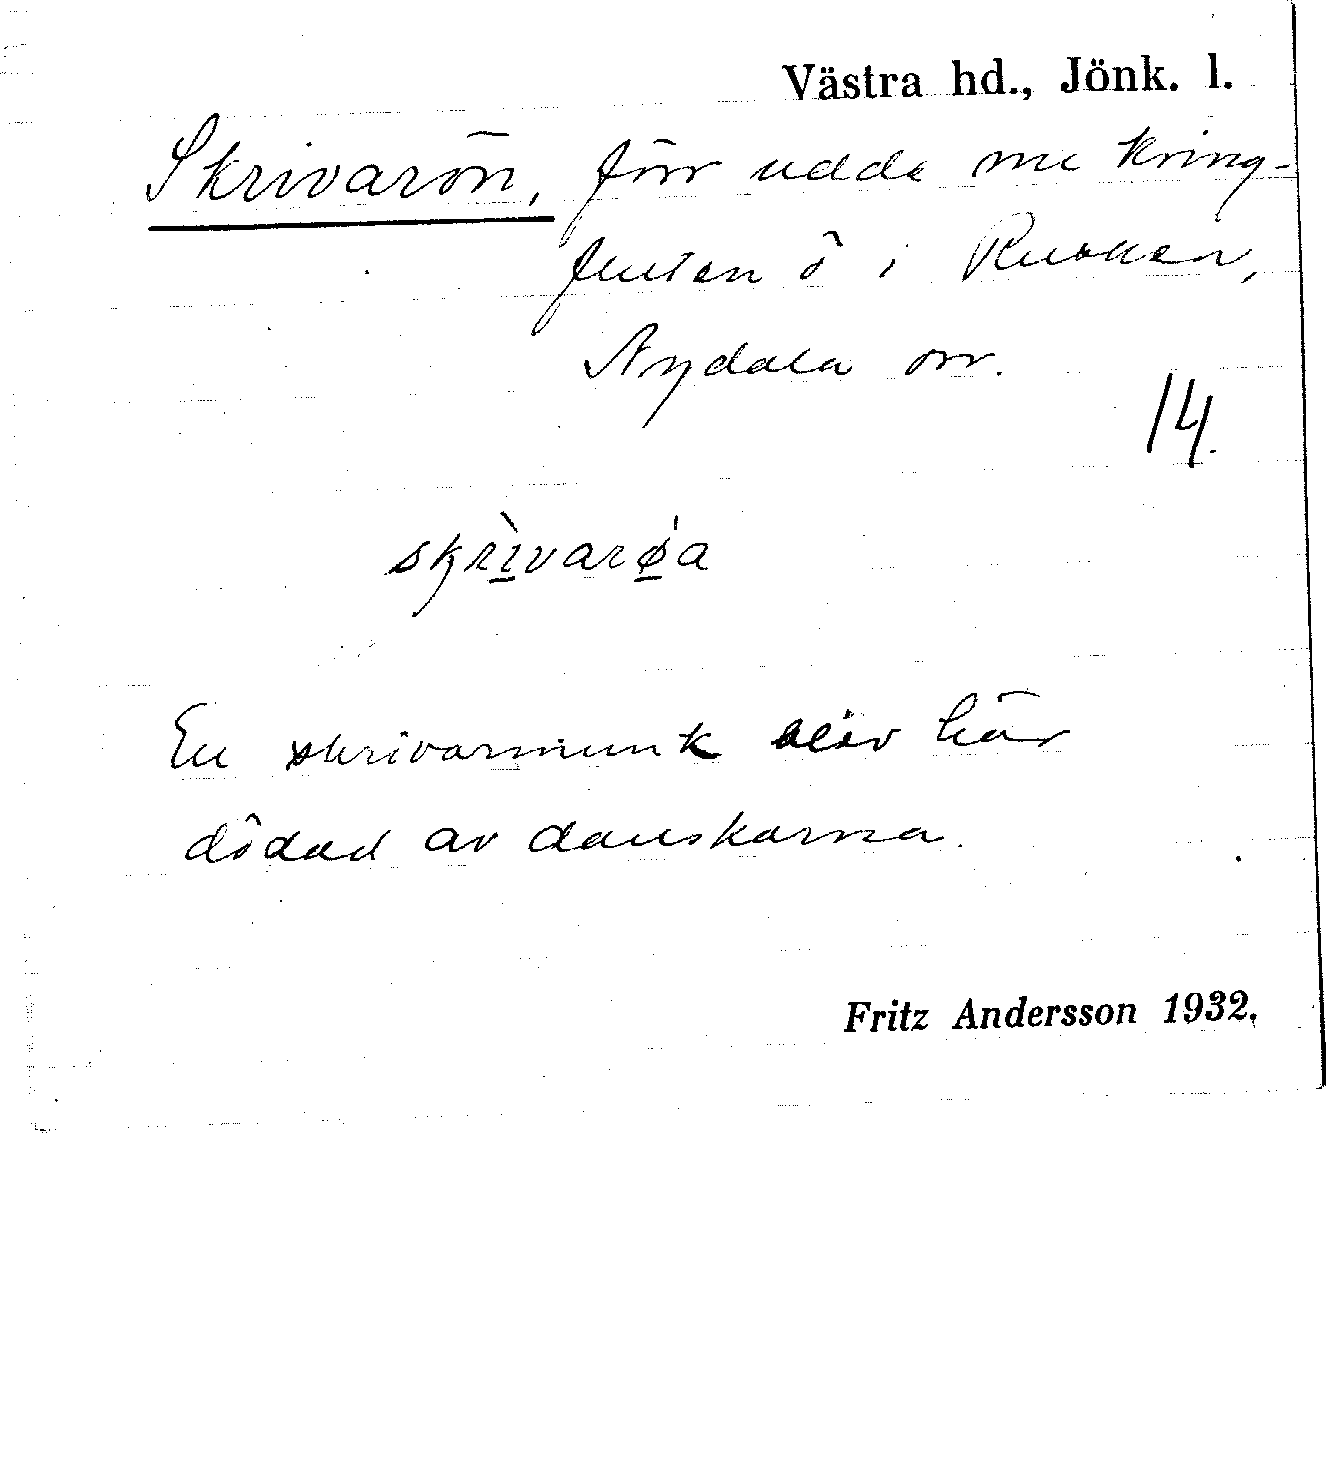 Västra hd., Jönk. l.
Skrivarön, förr udde nu kring-
fluten ö i Rusken,
Nydala sn.
14.
skrìvarǿa
En skrivarmunk blev här
dödad av danskarna.
Fritz Andersson 1932.